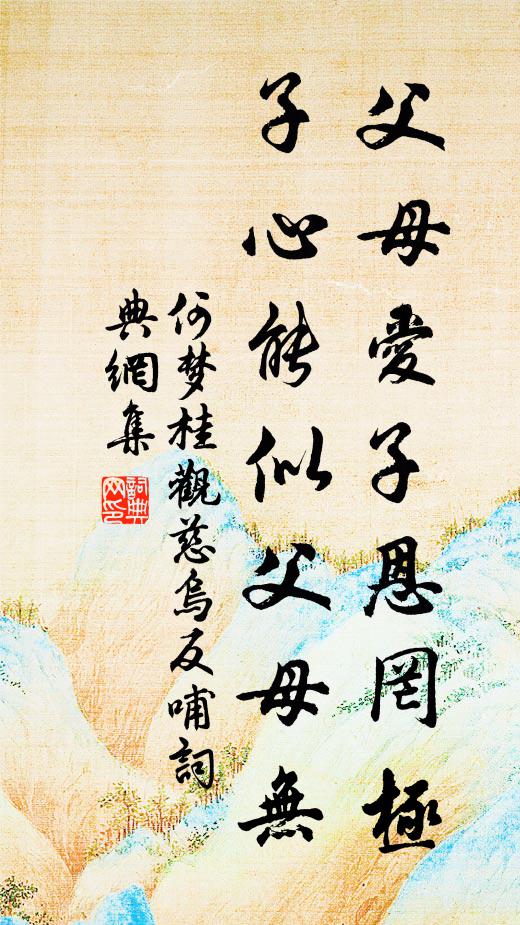 父母愛子恩罔極
子心能似父母無
何梦桂觀慈烏反哺詞
典網集
詞典
网印